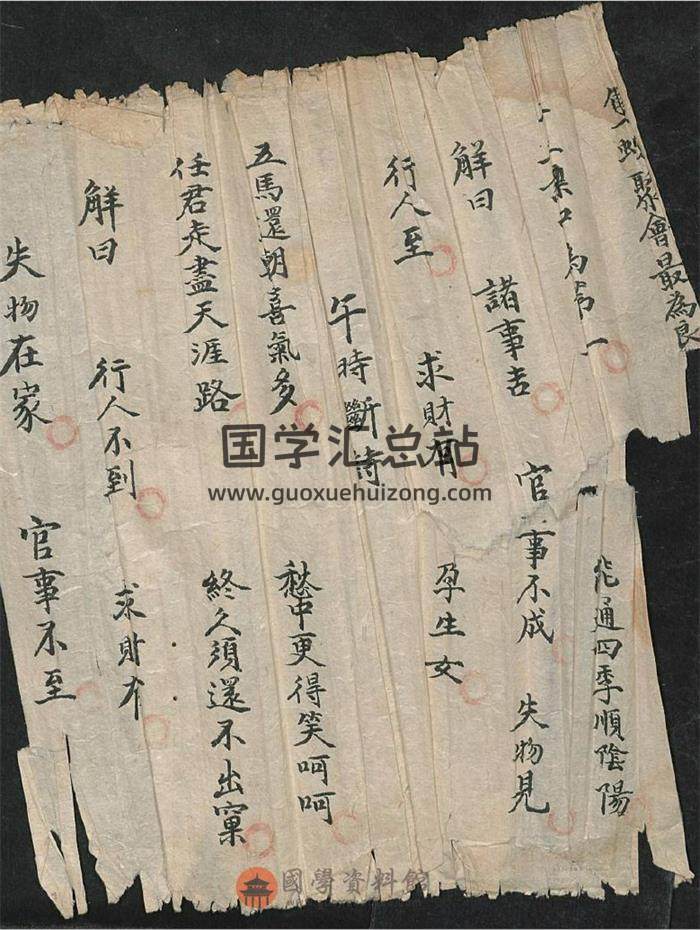 聚會最為良
通四季順陰陽
第一
解曰 諸事吉 官事不成 失物見
行人至 求財有 孕生女
午時斷詩
五馬還朝喜氣多 愁中更得笑呵呵
任君走盡天涯路 終久須還不出窠
解曰 行人不到 求財有
失物在家 官事不至
国学汇总站
www.guoxuehuizong.com
國學資料館